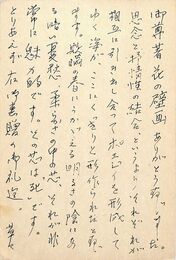 御尊著花の壁画ありがとう存じました。
思念と抒情性の結合といふよりそれぞれが
相互に引き出し合ってポエジーを形成して
ゆく姿がここにくっきりと形作られたと思い
ます。 の春にうかがえる明るさの陰にあ
る暗い憂愁、柔らかさの中の芯、それが非
常に魅力的です。その芯は死です。
とりあえず右御書贈の御礼迄